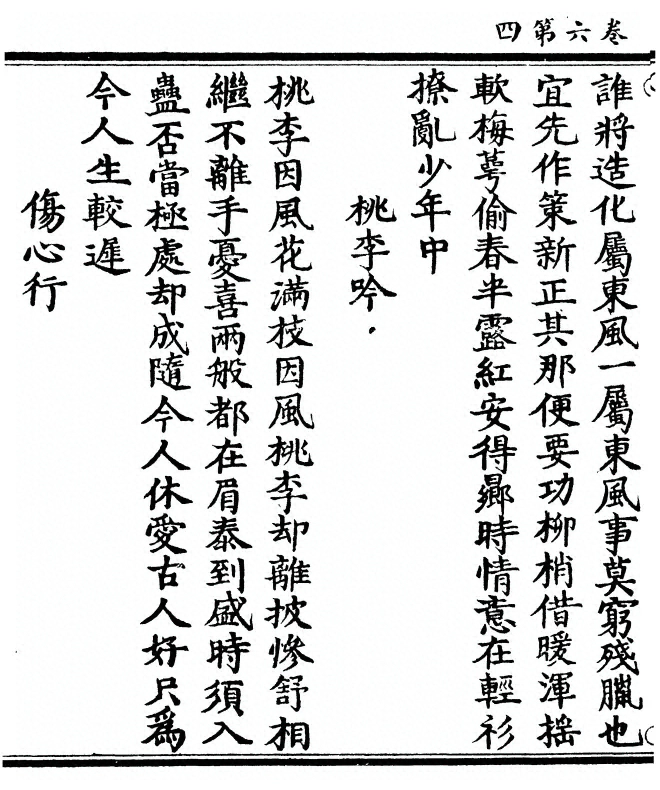 卷六第四
誰將造化屬東風一屬東風事莫窮殘臘也
宜先作策新正其那便要功柳梢借暖渾揺
軟梅萼偷春半露紅安得郷時情意在輕衫
撩亂少年中
桃李吟
桃李因風花滿枝因風桃李却離披慘舒相
繼不離手憂喜兩般都在眉泰到盛時須入
蠱否當極處却成隨今人休愛古人好只爲
今人生較遲
傷心行